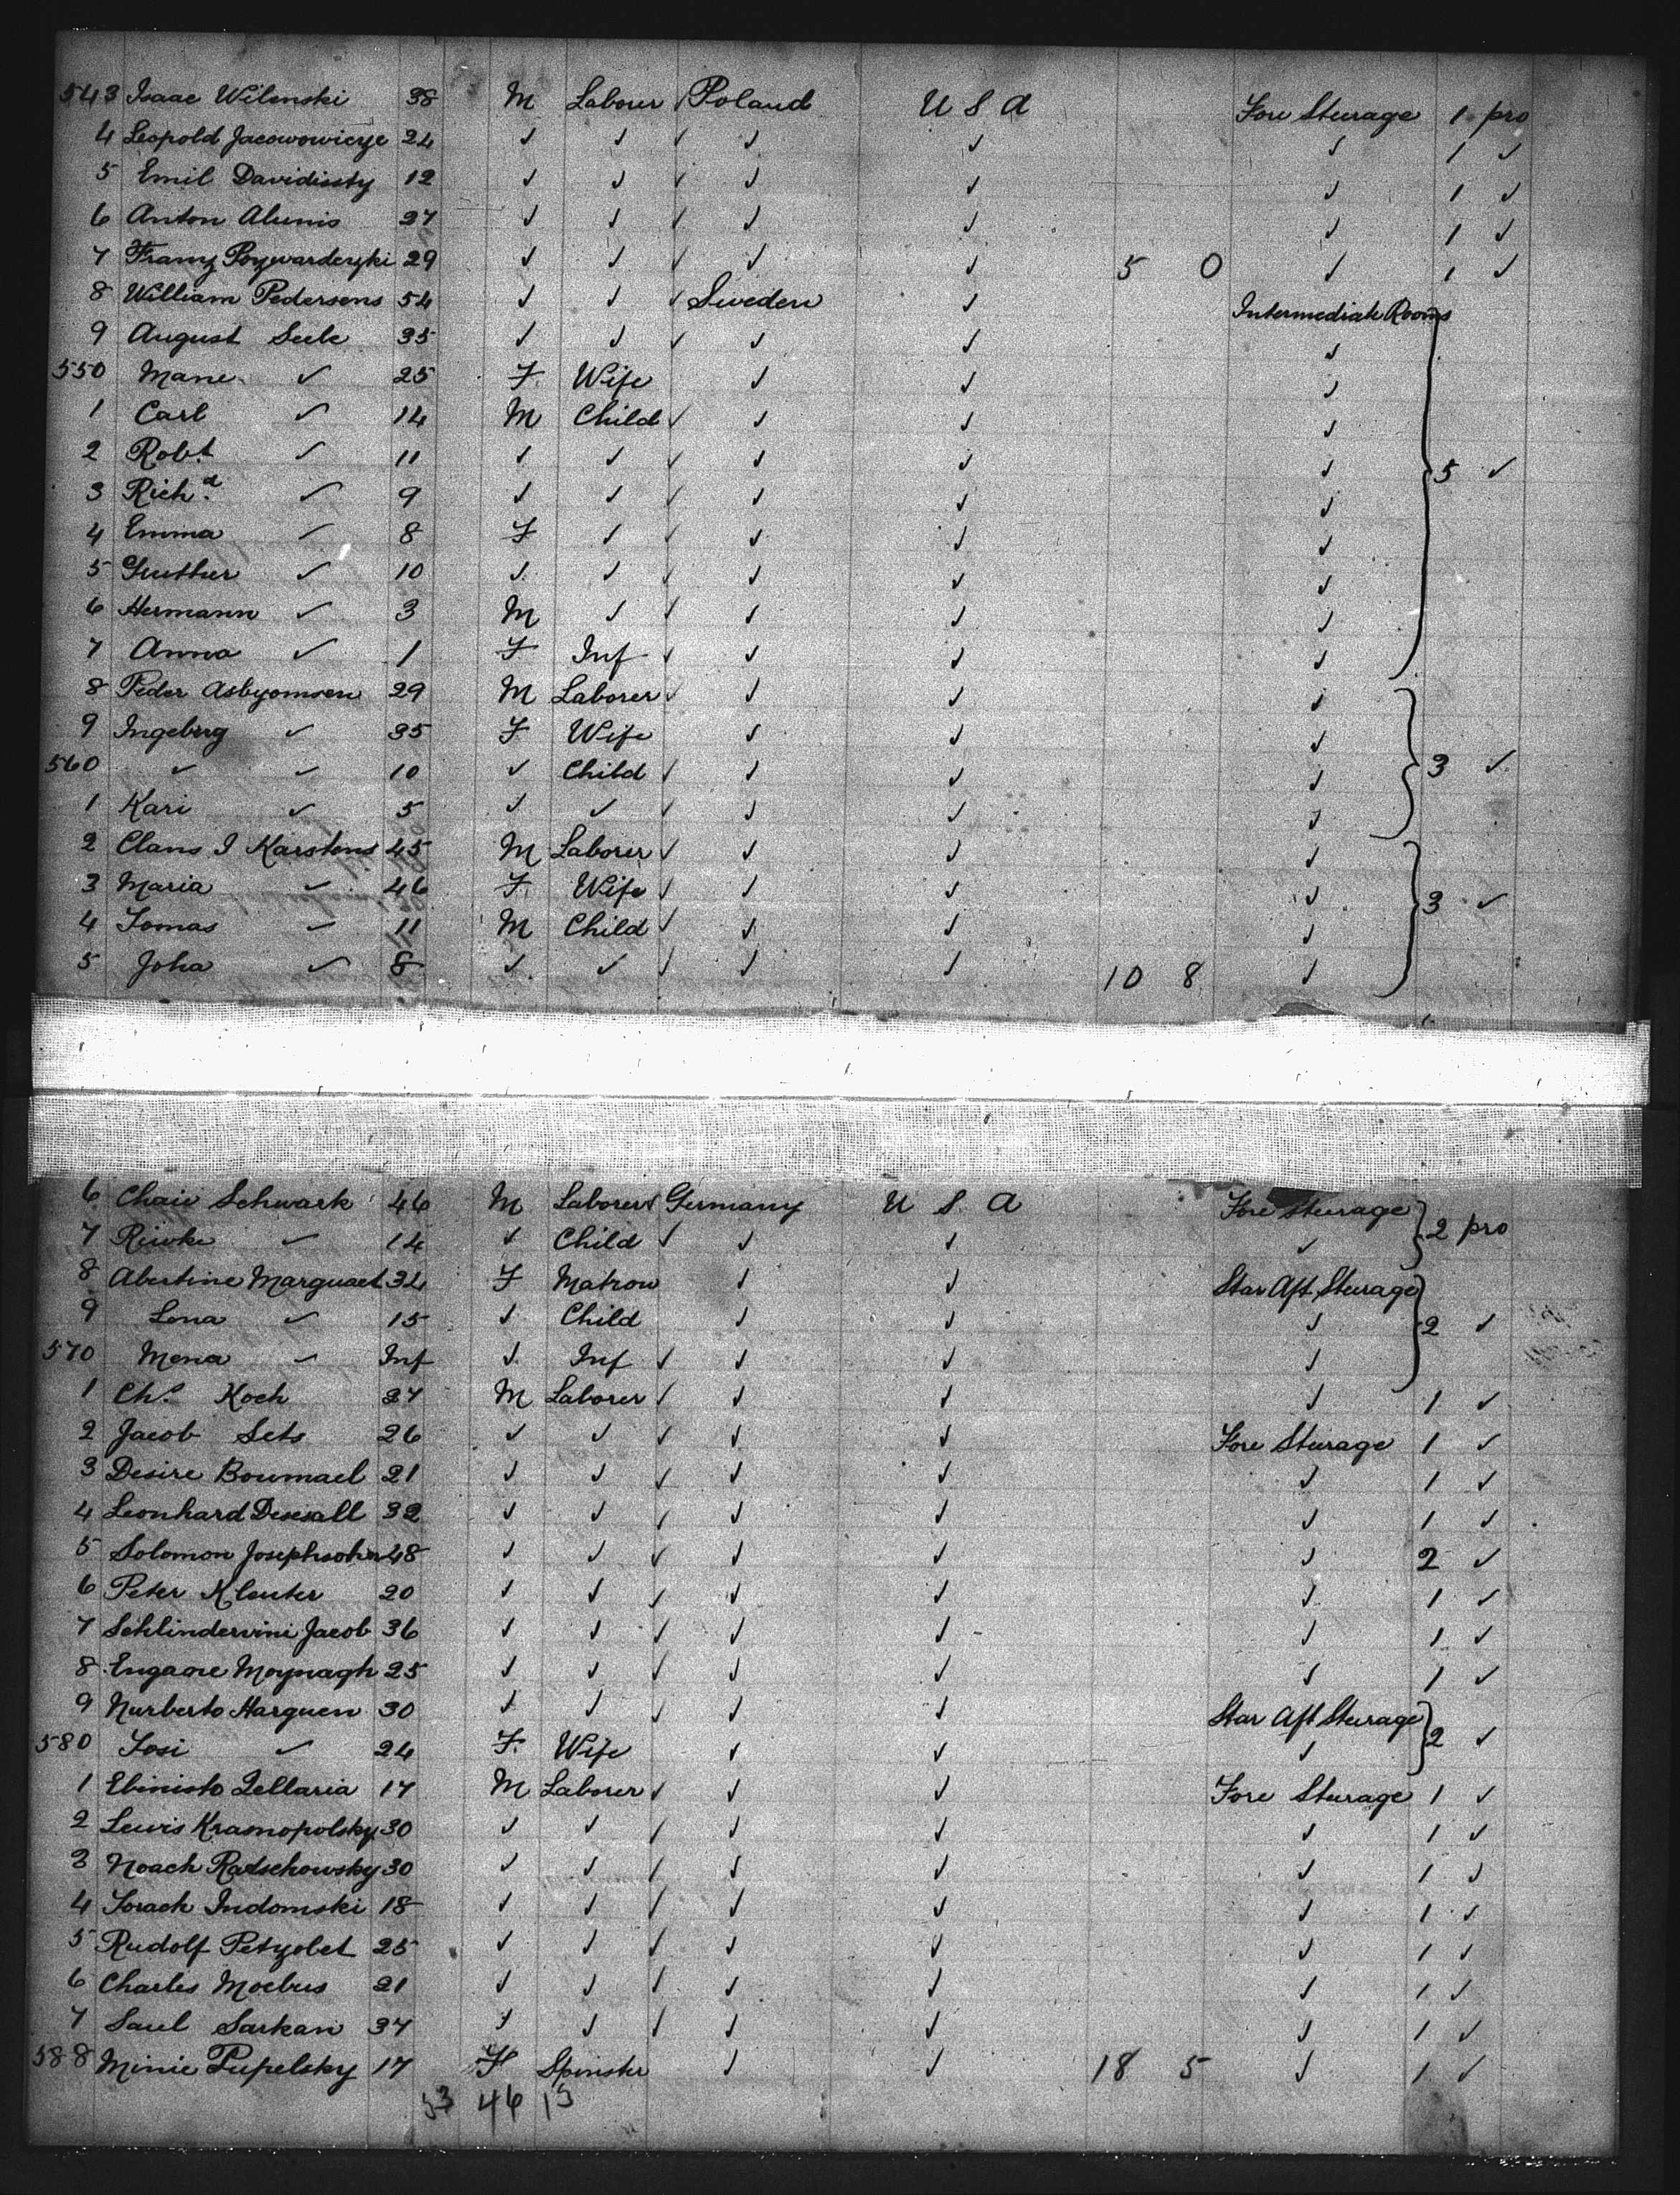 543 Isaac Wilenski 38 M Laborer ✓ Poland U S A Fore Steerage 1 pro
4 Leopold Jacowowicze 24 ✓ ✓ ✓ ✓ ✓ ✓ 1 ✓
5 Emil Davidissty 12 ✓ ✓ ✓ ✓ ✓ ✓ 1 ✓
6 Anton Alunis 27 ✓ ✓ ✓ ✓ ✓ ✓ 1 ✓
7 Franz 29 ✓ ✓ ✓ ✓ ✓ 5 0 ✓ 1 ✓
8 William Pedersens 54 ✓ ✓ ✓ Sweden ✓ Intermediate Rooms
9 August Seele 35 ✓ ✓ ✓ ✓ ✓ ✓
550 Mane ✓ 25 F Wife ✓ ✓ ✓
1 Carl ✓ 14 M Child ✓ ✓ ✓ ✓
2 Robt ✓ 11 ✓ ✓ ✓ ✓ ✓ ✓ 5 ✓
3 Richd ✓ 9 ✓ ✓ ✓ ✓ ✓ ✓
4 Emma ✓ 8 F ✓ ✓ ✓ ✓ ✓
5 ✓ 10 ✓ ✓ ✓ ✓ ✓ ✓
6 Hermann ✓ 3 M ✓ ✓ ✓ ✓ ✓
7 Anna ✓ 1 F Inf ✓ ✓ ✓ ✓
8 Peder Asbyomsen 29 M Laborer ✓ ✓ ✓ ✓
9 Ingebirg ✓ 35 F Wife ✓ ✓ ✓
560 ✓ ✓ 10 ✓ Child ✓ ✓ ✓ ✓ 3 ✓
1 Kari ✓ 5 ✓ ✓ ✓ ✓ ✓ ✓
2 Clans I Karstens 45 M Laborer ✓ ✓ ✓ ✓
3 Maria ✓ 46 F Wife ✓ ✓ ✓ ✓ 3 ✓
4 Tomas ✓ 11 M Child ✓ ✓ ✓ ✓
5 Joha ✓ 8 ✓ ✓ ✓ ✓ ✓ 10 8 ✓
6 Chaie Schwark 46 M Laborer ✓ Germany U S A Fore Steerage 2 pro
7 Riwke ✓ 14 ✓ Child ✓ ✓ ✓ ✓
8 Abertine Marguaet 34 F Matron ✓ ✓ Star Aft Steerage
9 Lena ✓ 15 ✓ Child ✓ ✓ ✓ 2 ✓
570 Mena ✓ Inf ✓ Inf ✓ ✓ ✓ ✓
1 Chs Koch 27 M Laborer ✓ ✓ ✓ ✓ 1 ✓
2 Jacob Sets 26 ✓ ✓ ✓ ✓ ✓ Fore Steerage 1 ✓
3 Desire Boumael 21 ✓ ✓ ✓ ✓ ✓ ✓ 1 ✓
4 Leonhard Desesall 32 ✓ ✓ ✓ ✓ ✓ ✓ 1 ✓
5 Solomon Josephsohn 48 ✓ ✓ ✓ ✓ ✓ ✓ 2 ✓
6 Peter Klenter 20 ✓ ✓ ✓ ✓ ✓ ✓ 1 ✓
7 Schlindervini Jacob 36 ✓ ✓ ✓ ✓ ✓ ✓ 1 ✓
8 Engaore Moynagh 25 ✓ ✓ ✓ ✓ ✓ ✓ 1 ✓
9 Nurberto Harguen 30 ✓ ✓ ✓ ✓ ✓ Star Aft Steerage
580 Tosi ✓ 24 F Wife ✓ ✓ ✓ 2 ✓
1 Ebinisto Zellaria 17 M Laborer ✓ ✓ ✓ Fore Steerage 1 ✓
2 Lewis Kramopolsky 30 ✓ ✓ ✓ ✓ ✓ ✓ 1 ✓
3 Noach Radschowsky 30 ✓ ✓ ✓ ✓ ✓ ✓ 1 ✓
4 Sorach Indomski 18 ✓ ✓ ✓ ✓ ✓ ✓ 1 ✓
5 Rudolf Petzolet 25 ✓ ✓ ✓ ✓ ✓ ✓ 1 ✓
6 Charles Moebus 21 ✓ ✓ ✓ ✓ ✓ ✓ 1 ✓
7 Saul Sarkan 37 ✓ ✓ ✓ ✓ ✓ ✓ 1 ✓
588 Minie Pupelsky 17 F Spinster ✓ ✓ 18 5 ✓ 1 ✓
33 46 13